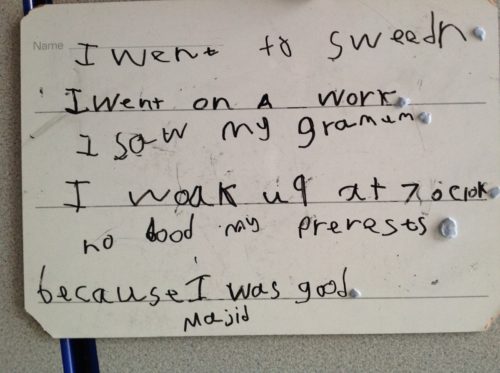 Name I went to sweedn.
I went on a work.
I saw my gramum.
I woak up at 7 oclok
no bood my prerests.
because I was good.
Majid